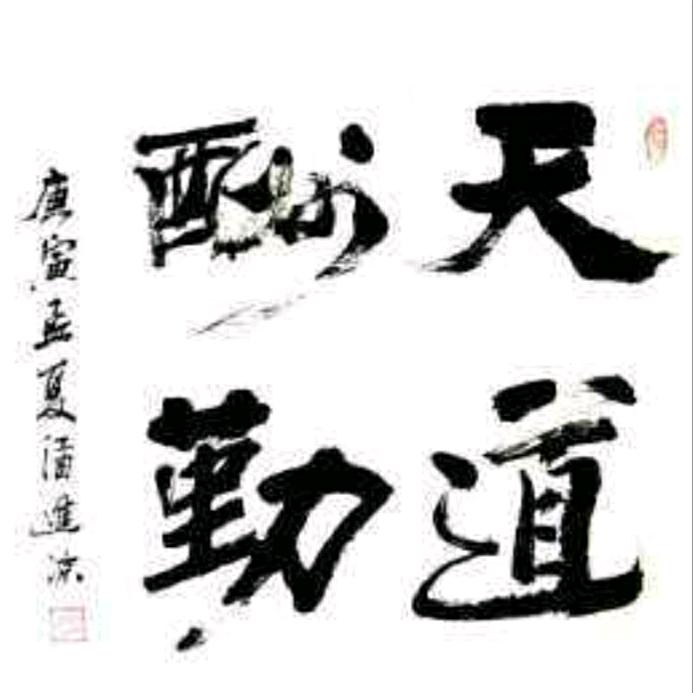 天道
酬勤
庚寅孟夏潘進